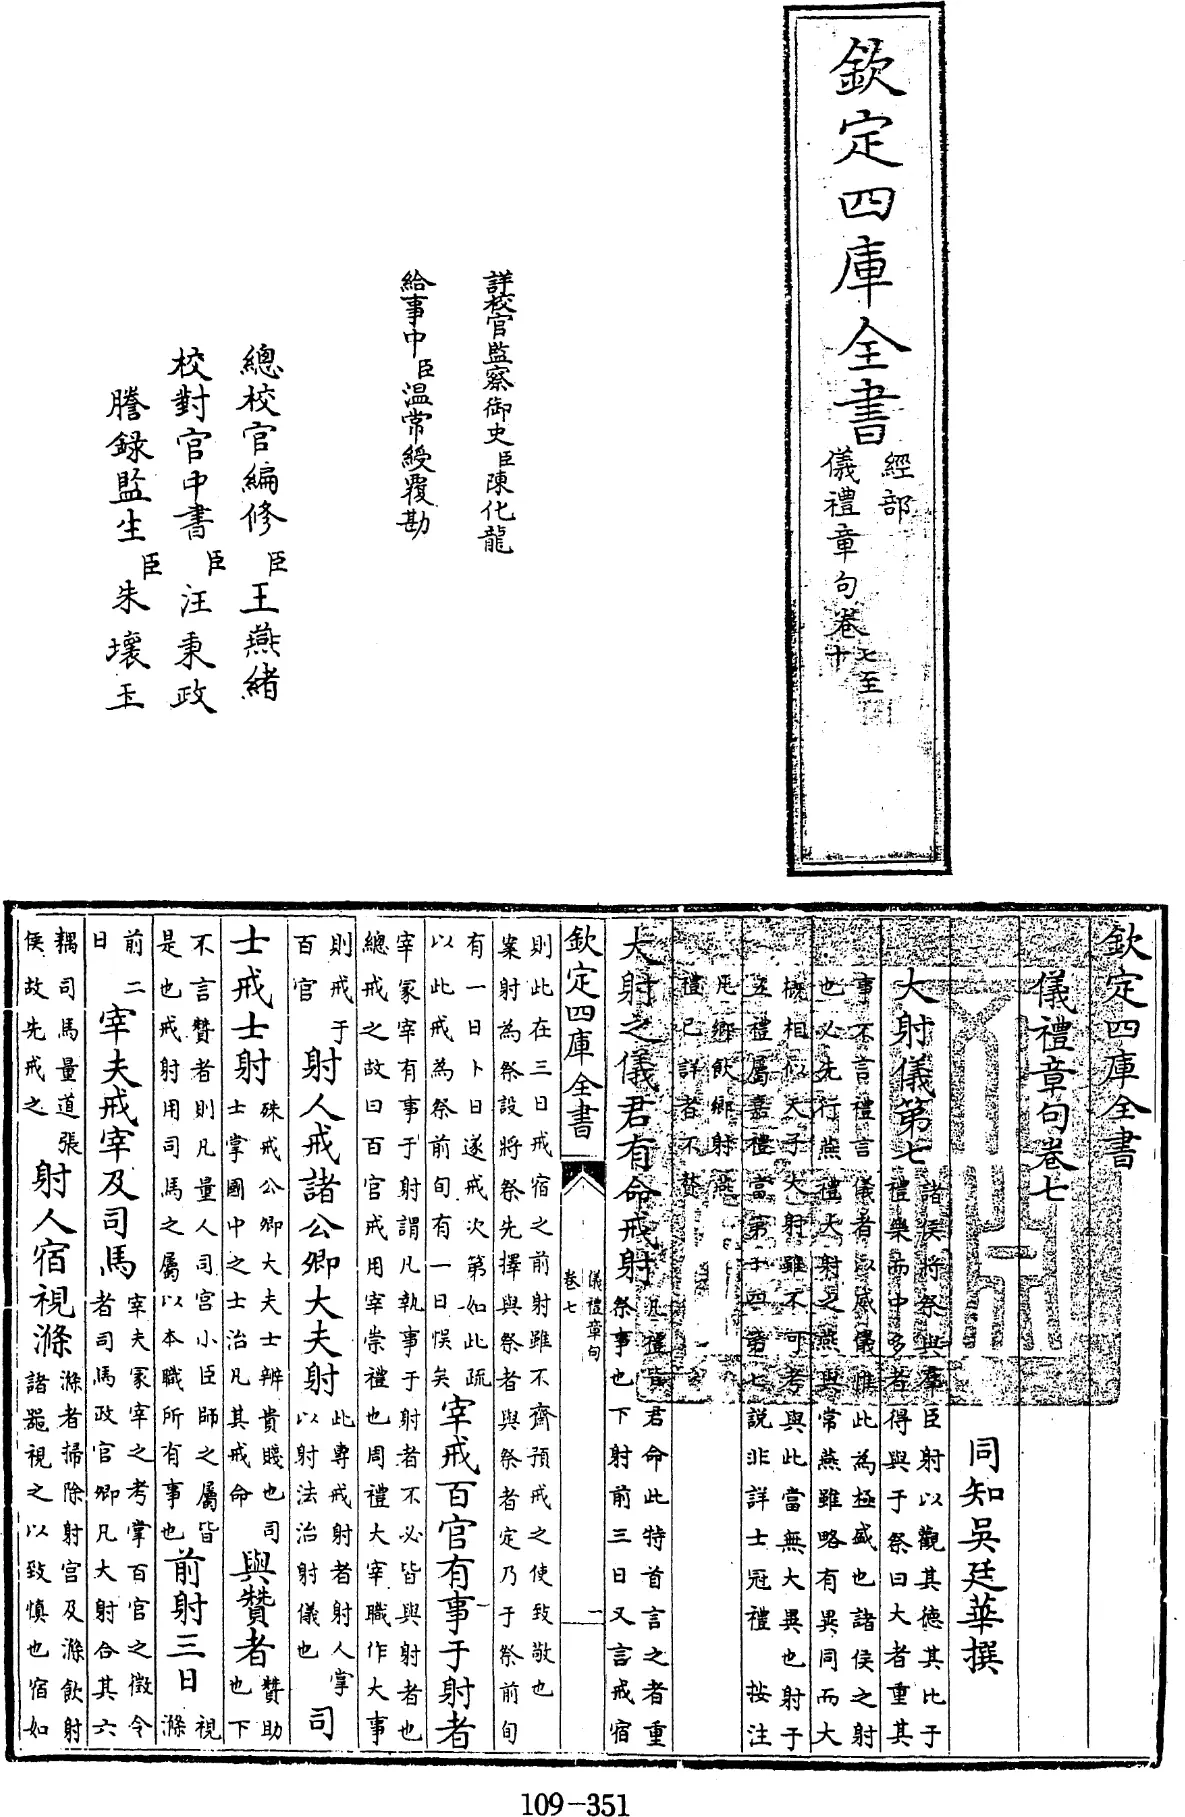 欽定四庫全書
經部
儀禮章句卷七至十
詳校官監察御史臣陳化龍
給事中臣温常綬覆勘
總校官編修臣王燕緒
校對官中書臣汪秉政
謄録監生臣朱壞玉
欽定四庫全書
儀禮章句卷七
同知吳廷華撰
大射儀第七 諸侯將祭與羣臣射以觀其德其比于
禮樂而中多者得與于祭曰大者重其
事不言禮言儀者以威儀惟此為極盛也諸侯之射
也必先行燕禮大射之燕與常燕雖略有異同而大
概相似天子大射雖不可考與此當無大異也射于
五禮屬嘉禮當第十四第七說非詳士冠禮 按注
凡鄉飲鄉射燕
禮已詳者不贅
大射之儀君有命戒射 凡禮皆君命此特首言之者重
祭事也下射前三日又言戒宿
欽定四庫全書
儀禮章句
卷七
則此在三日戒宿之前射雖不齊預戒之使致敬也
案射為祭設將祭先擇與祭者與祭者定乃于祭前旬
有一日卜日遂戒次第如此疏
以此戒為祭前旬有一日悞矣 宰戒百官有事于射者
宰冢宰有事于射謂凡執事于射者不必皆與射者也
總戒之故曰百官戒用宰崇禮也周禮大宰職作大事
則戒于
百官 射人戒諸公卿大夫射 此專戒射者射人掌
以射法治射儀也 司
士戒士射 殊戒公卿大夫士辨貴賤也司
士掌國中之士治凡其戒命 與贊者 贊助
也下
不言贊者則凡量人司宮小臣師之屬皆
是也戒射用司馬之屬以本職所有事也 前射三日 視
滌
前二
日 宰夫戒宰及司馬 宰夫冢宰之考掌百官之徵令
者司馬政官卿凡大射合其六
耦司馬量道張
侯故先戒之 射人宿視滌 滌者掃除射宮及滌飲射
諸器視之以致慎也宿如
109-351